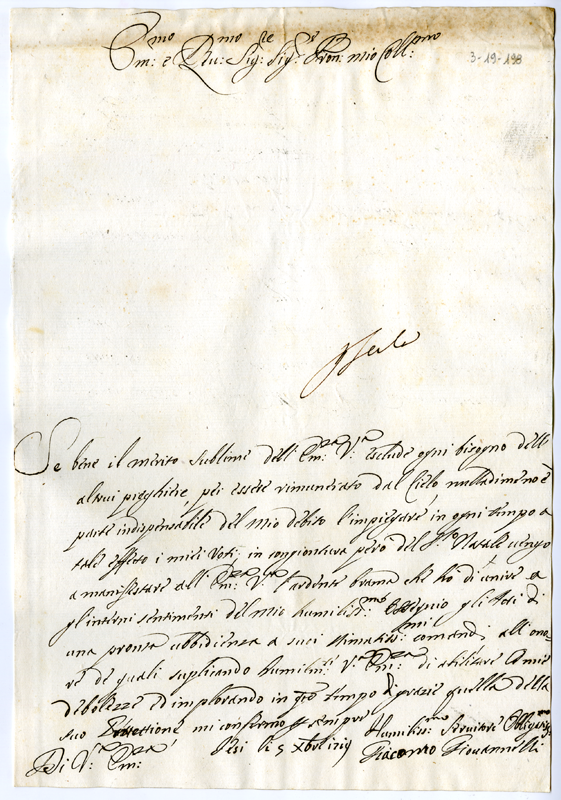 Em:mo e Reu:mo Sig:re Sig:r Pron: mio Coll:mo
3-19-198
Se bene il merito sublime dell'Em:za V:ra esclude ogni bisogno dell'
altrui preghiere, per essere rimunerato dal Cielo nulladimeno è
parte indispensabile del mio debito l'impiegare in ogni tempo a
tale effetto i miei voti: in congiontura però del S:to Natale vengo
a manifestare all'Em:za V:ra l'ardente brama che hò di unire a
gl'interni sentimenti del mio humiliss:mo Ossequio gli Atti di
una pronta ubbidienza a suoi stimatiss:mi comandi, all'ono
re de quali suplicando humilm:te V:ra Em:za di abilitare le mie
debolezze ed implorando in tempo grazie quella della
sua Protettione mi confermo per sempre
Di V:ra Em:za
Jesi li 5 Xbre
Humiliss:mo Servitore Obligatiss:mo
Giacomo Giovannelli